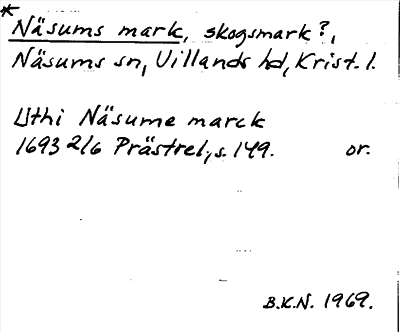 * Näsums mark, skogsmark?,
Näsums sn, Villands hd, Krist. l.
Uthi Näsume marck
1693 2/6 Prästrel., s. 149. or.
B.K.N. 1969.